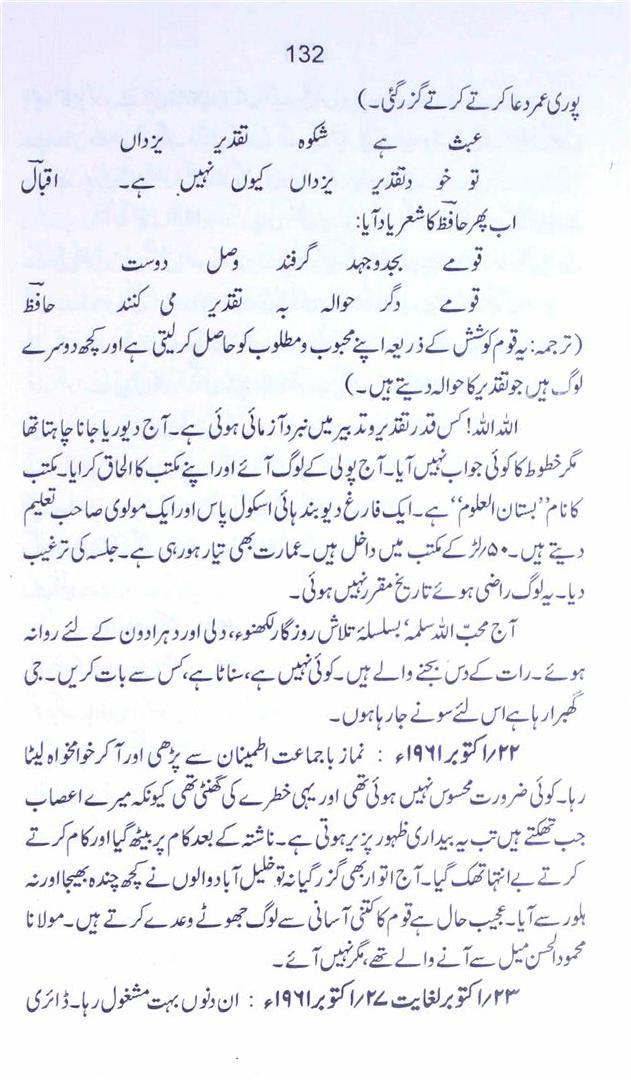 132
پوری عمر دعا کرتے کرتے گزر گئی۔)
عبث ہے شکوہ تقدیر یزداں
تو خود تقدیر یزداں کیوں نہیں ہے۔ اقبالؔ
اب پھر حافظؔ کا شعر یاد آیا:
قومے بجد و جہد گرفند وصل دوست
قومے دگر حوالہ بہ تقدیر می کنند حافظؔ
(ترجمہ: یہ قوم کوشش کے ذریعہ اپنے محبوب و مطلوب کو حاصل کر لیتی ہے اور کچھ دوسرے
لوگ ہیں جو تقدیر کا حوالہ دیتے ہیں۔)
اللہ اللہ! کس قدر تقدیر و تدبیر میں نبرد آزمائی ہوئی ہے۔ آج دیوریا جانا چاہتا تھا
مگر خطوط کا کوئی جواب نہیں آیا۔ آج پولی کے لوگ آئے اور اپنے مکتب کا الحاق کرایا۔ مکتب
کا نام ”بستان العلوم“ ہے۔ ایک فارغ دیوبند ہائی اسکول پاس اور ایک مولوی صاحب تعلیم
دیتے ہیں۔ ۵۰/لڑکے مکتب میں داخل ہیں۔ عمارت بھی تیار ہو رہی ہے۔ جلسہ کی ترغیب
دیا۔ یہ لوگ راضی ہوئے تاریخ مقرر نہیں ہوئی۔
آج محبّ اللہ سلمہٗ بسلسلۂ تلاش روزگار لکھنوء، دلی اور دہرادون کے لئے روانہ
ہوئے۔ رات کے دس بجنے والے ہیں۔ کوئی نہیں ہے، سناٹا ہے، کس سے بات کریں۔ جی
گھبرا رہا ہے اس لئے سونے جا رہا ہوں۔
۲۲/اکتوبر ۱۹۶۱ء : نماز باجماعت اطمینان سے پڑھی اور آ کر خوامخواہ لیٹا
رہا۔ کوئی ضرورت محسوس نہیں ہوئی تھی اور یہی خطرے کی گھنٹی تھی کیونکہ میرے اعصاب
جب تھکتے ہیں تب یہ بیداری ظہور پزیر ہوتی ہے۔ ناشتہ کے بعد کام پر بیٹھ گیا اور کام کرتے
کرتے بے انتہا تھک گیا۔ آج اتوار بھی گزر گیا نہ تو خلیل آباد والوں نے کچھ چندہ بھیجا اور نہ
ہلور سے آیا۔ عجیب حال ہے قوم کا کتنی آسانی سے لوگ جھوٹے وعدے کرتے ہیں۔ مولانا
محمود الحسن میل سے آنے والے تھے، مگر نہیں آئے۔
۲۳/اکتوبر لغایت ۲۷/اکتوبر ۱۹۶۱ء : ان دنوں بہت مشغول رہا۔ ڈائری